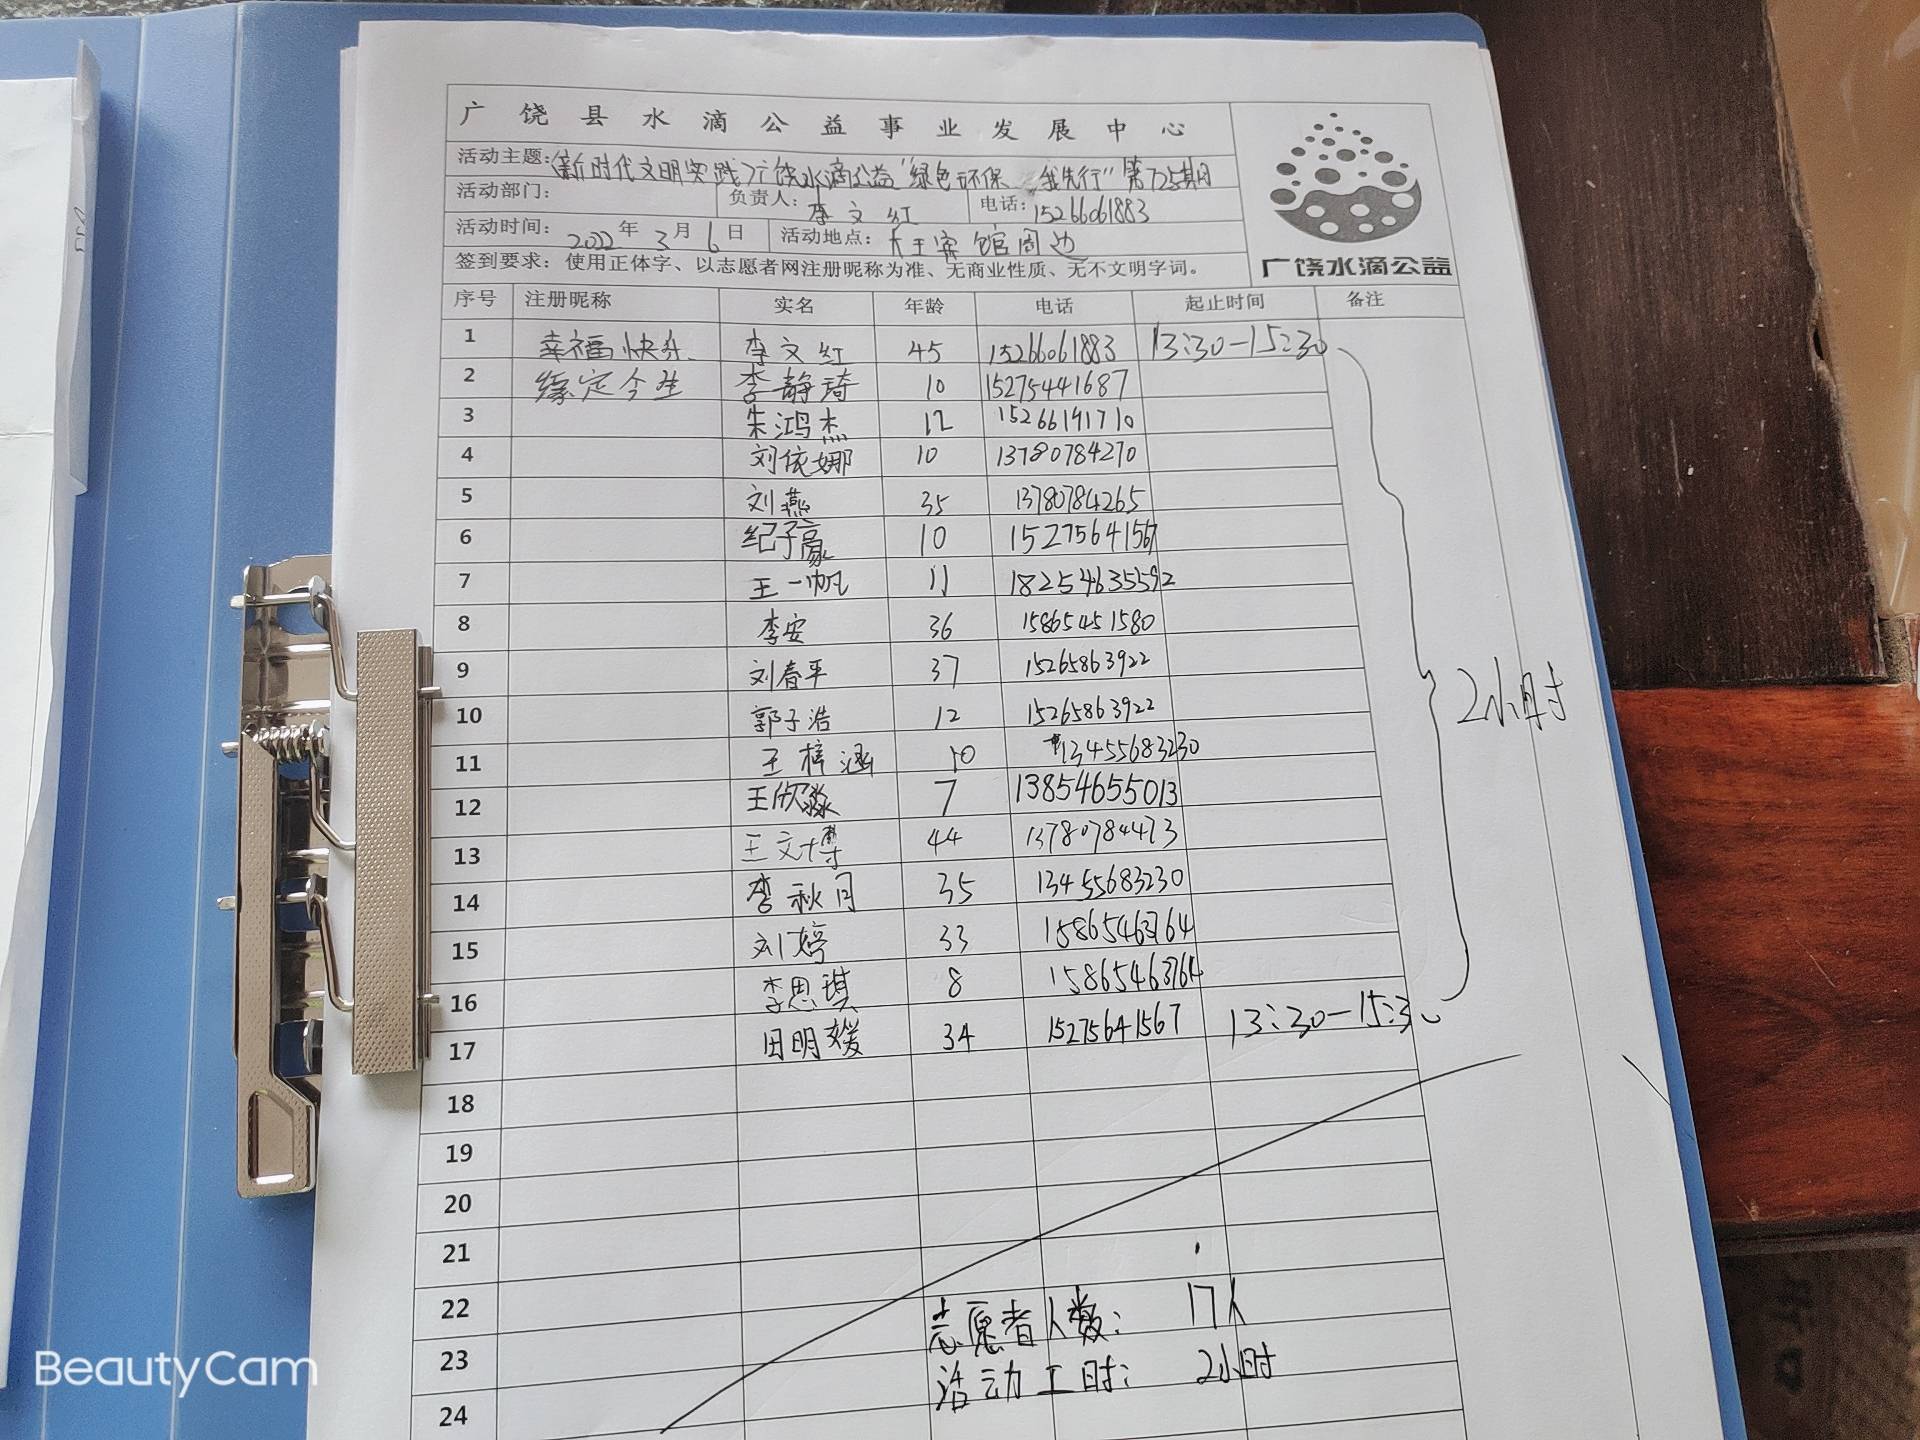 广饶县水滴公益事业发展中心
活动主题:新时代文明实践广饶水滴公益"绿色环保 我先行"第725期
活动部门: 负责人:李文红 电话:15266061883
活动时间:2022年3月6日 活动地点:大王宾馆周边
签到要求:使用正体字、以志愿者网注册昵称为准、无商业性质、无不文明字词。
广饶水滴公益
序号 注册昵称 实名 年龄 电话 起止时间 备注
1 幸福快乐 李文红 45 15266061883 13:30-15:30
2 缘定今生 李静琦 10 15275441687
3 朱鸿杰 12 15266191710
4 刘依娜 10 13780784270
5 刘燕 35 13780784265
6 纪子豪 10 15275641567
7 王一帆 11 18254635592
8 李安 36 15865451580
9 刘春平 37 15265863922
10 郭子浩 12 15265863922
2小时
11 王梓涵 10 13455683230
12 王欣淼 7 13854655013
13 王文博 44 13780784473
14 李秋月 35 13455683230
15 刘婷 33 15865463764
16 李思琪 8 15865463764
17 田明媛 34 15275641567 13:30-15:30
18
19
20
21
22 志愿者人数: 17人
23 活动工时: 2小时
24
BeautyCam